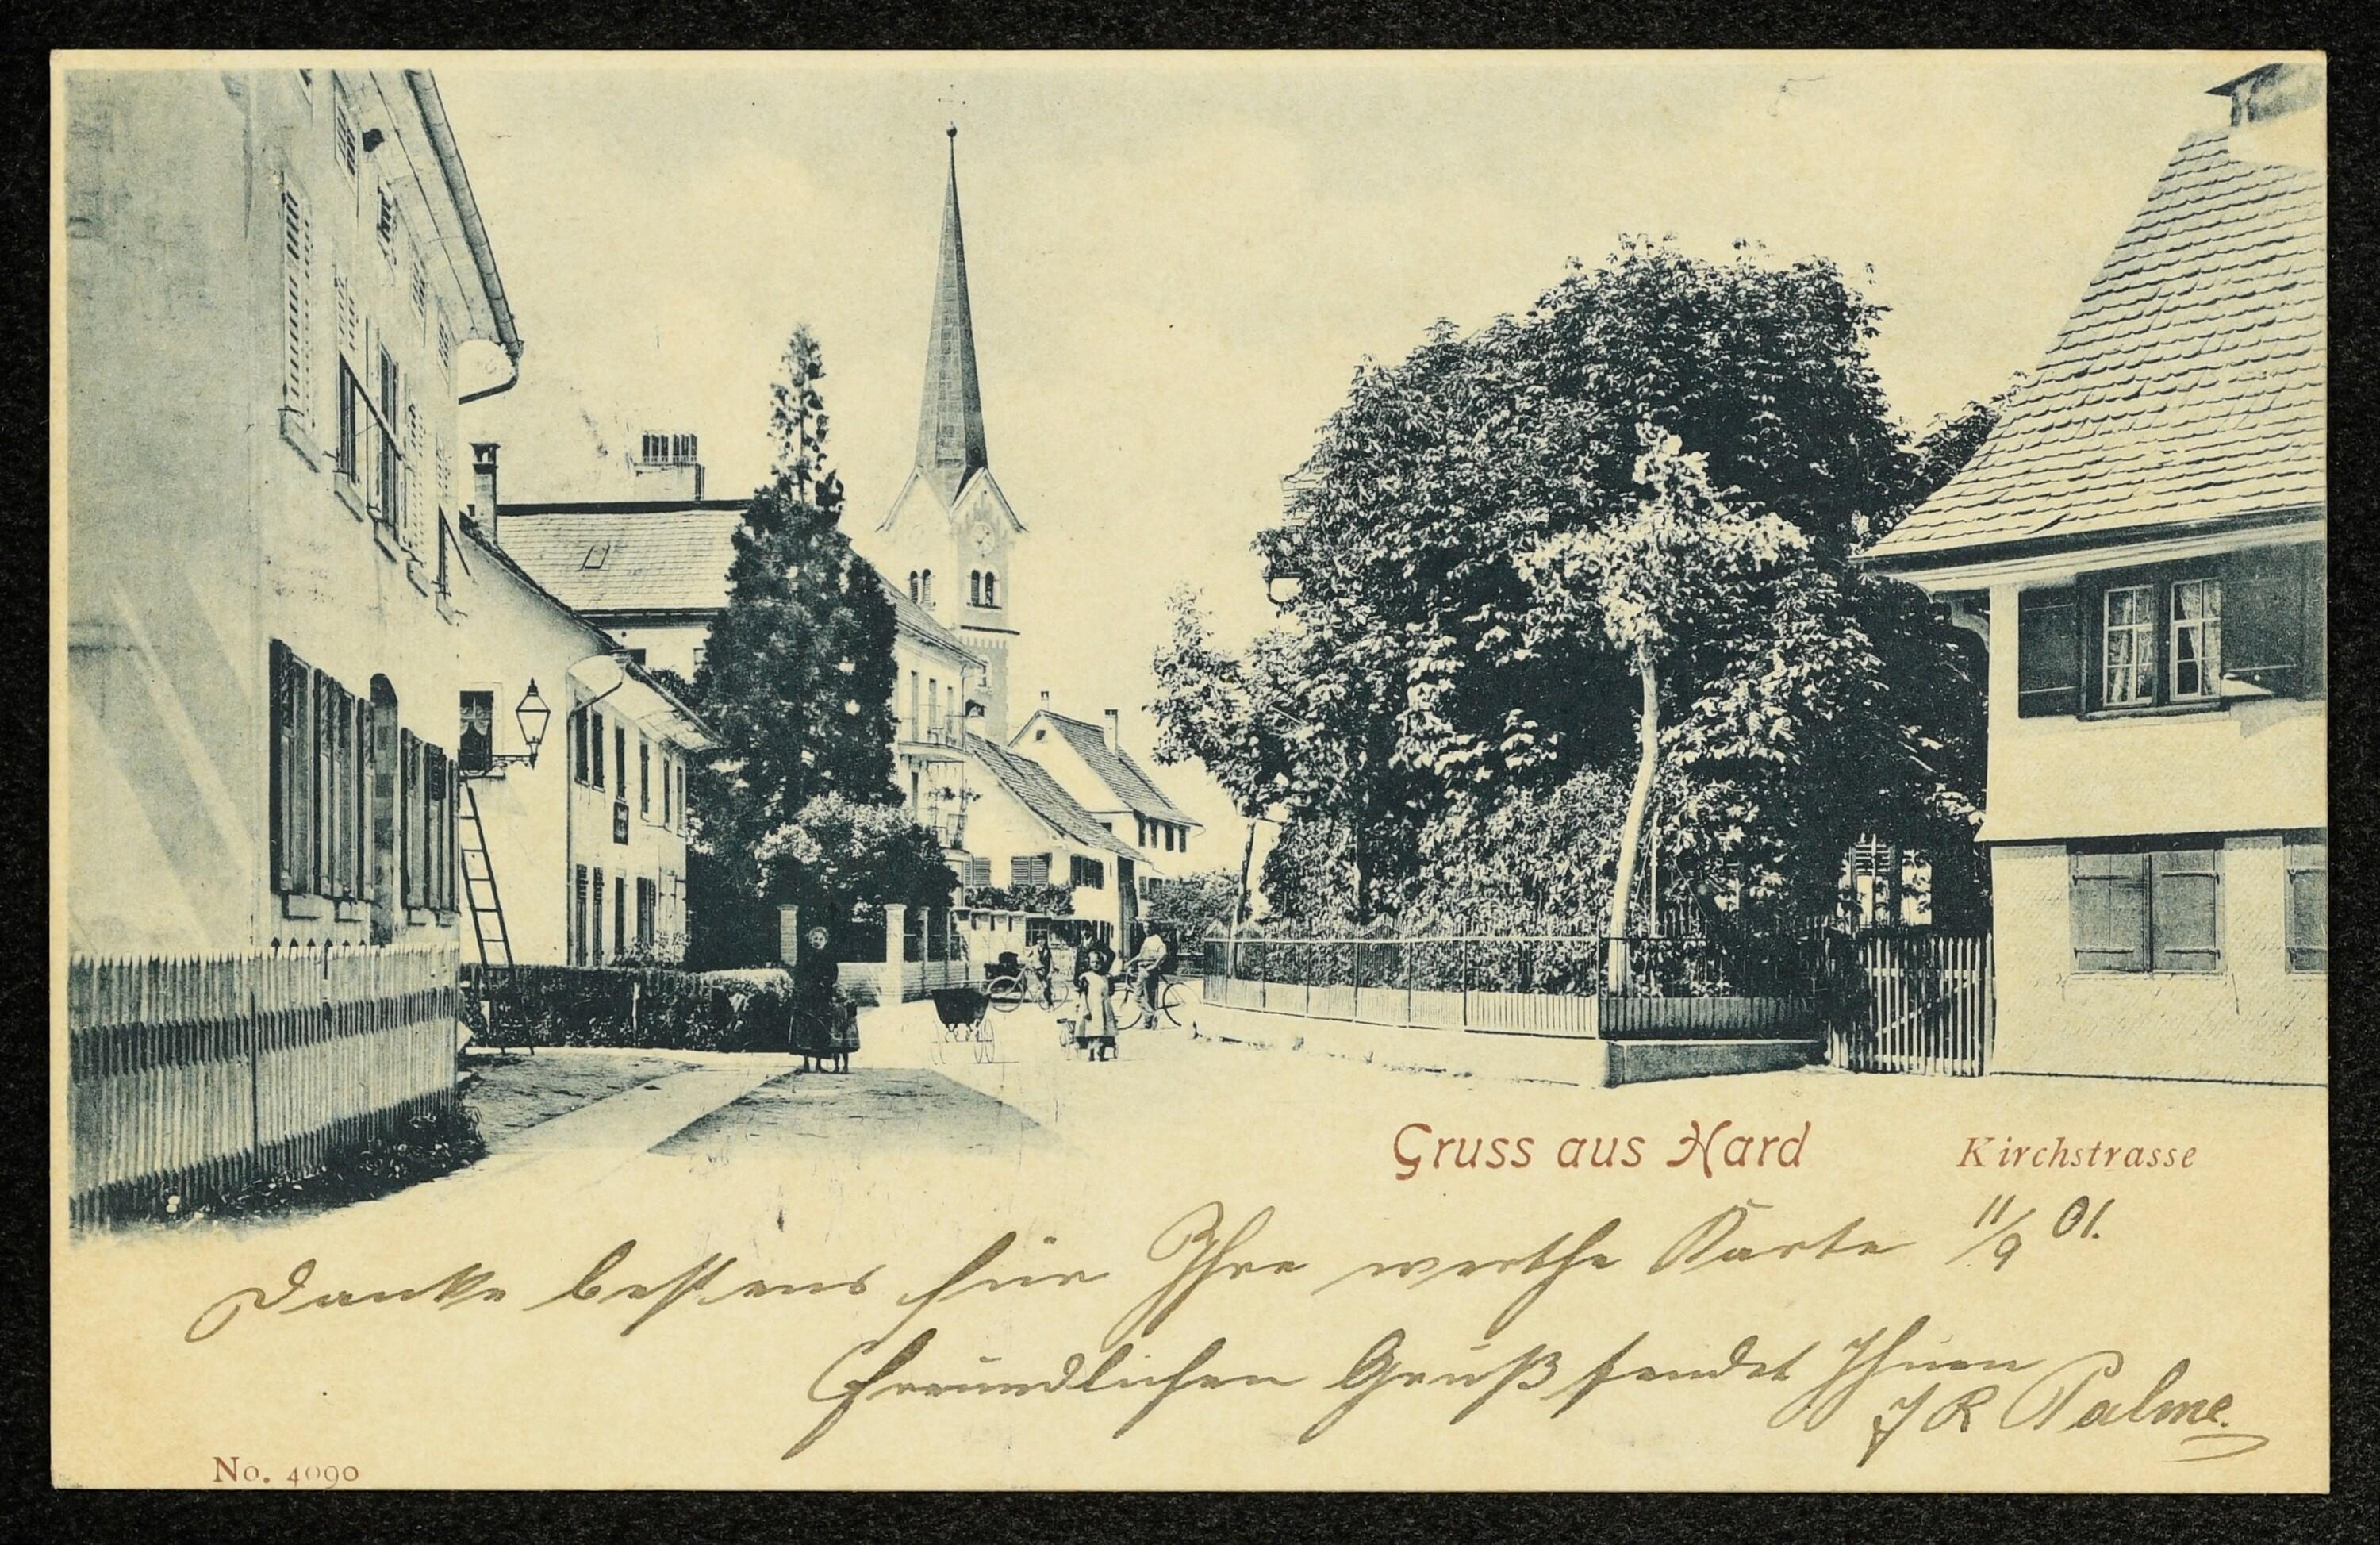 Gruss aus Hard Kirchstrasse
Danke bestens für Ihre werthe Karte 11/9 01.
Freundlichen Gruß sendet Ihnen
J R Palme.
No. 4090